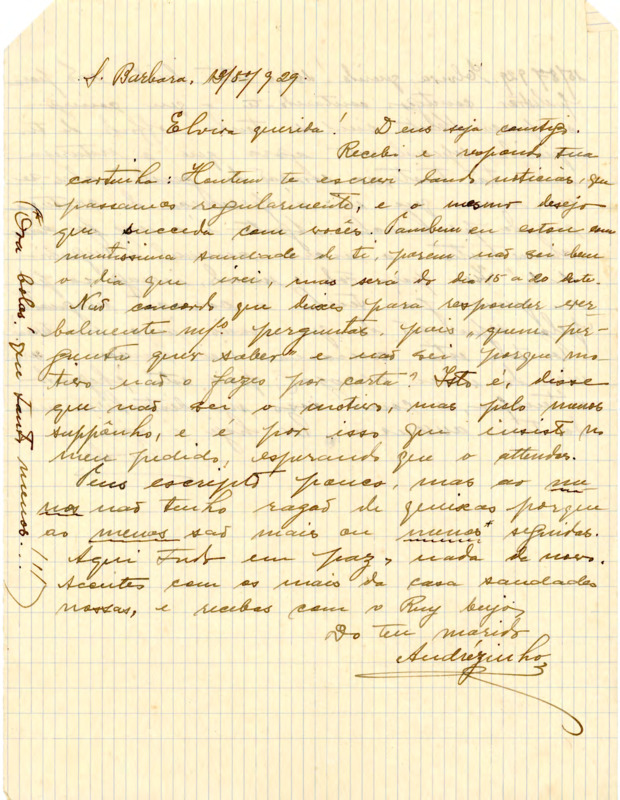 S. Barbara, 12/807/929.
Elvira querida! Deus seja comtigo.
Recebi e respondo tua
cartinha: Hontem te escrevi dando noticias, que
passamos regularmente, e o mesmo desejo
que succeda com vocês. Tambem eu estou com
muitissima saudade de ti, porém não sei bem
o dia que irei, mas será do dia 15 a 20 deste.
Não concordo que deixes para responder ver-
balmente mªs perguntas, pois "quem per-
gunta quer saber" e não sei porque mo-
tivo não o fazes por carta? Isto é, disse
que não sei o motivo, mas pelo menos
suppônho, e é por isso que insisto no
meu pedido, esperando que o attendas.
Tens escripto pouco, mas ao me-
nos não tenho razão de queixas porque
ao menos são mais ou menos* seguidas.
Aqui tudo em paz, nada de novo.
Aceites com os mais da casa saudades
nossas, e recebas com o Ruy beijos
Do teu marido
Andrézinho
(*Ora bolas! que tanto menos... !!!)